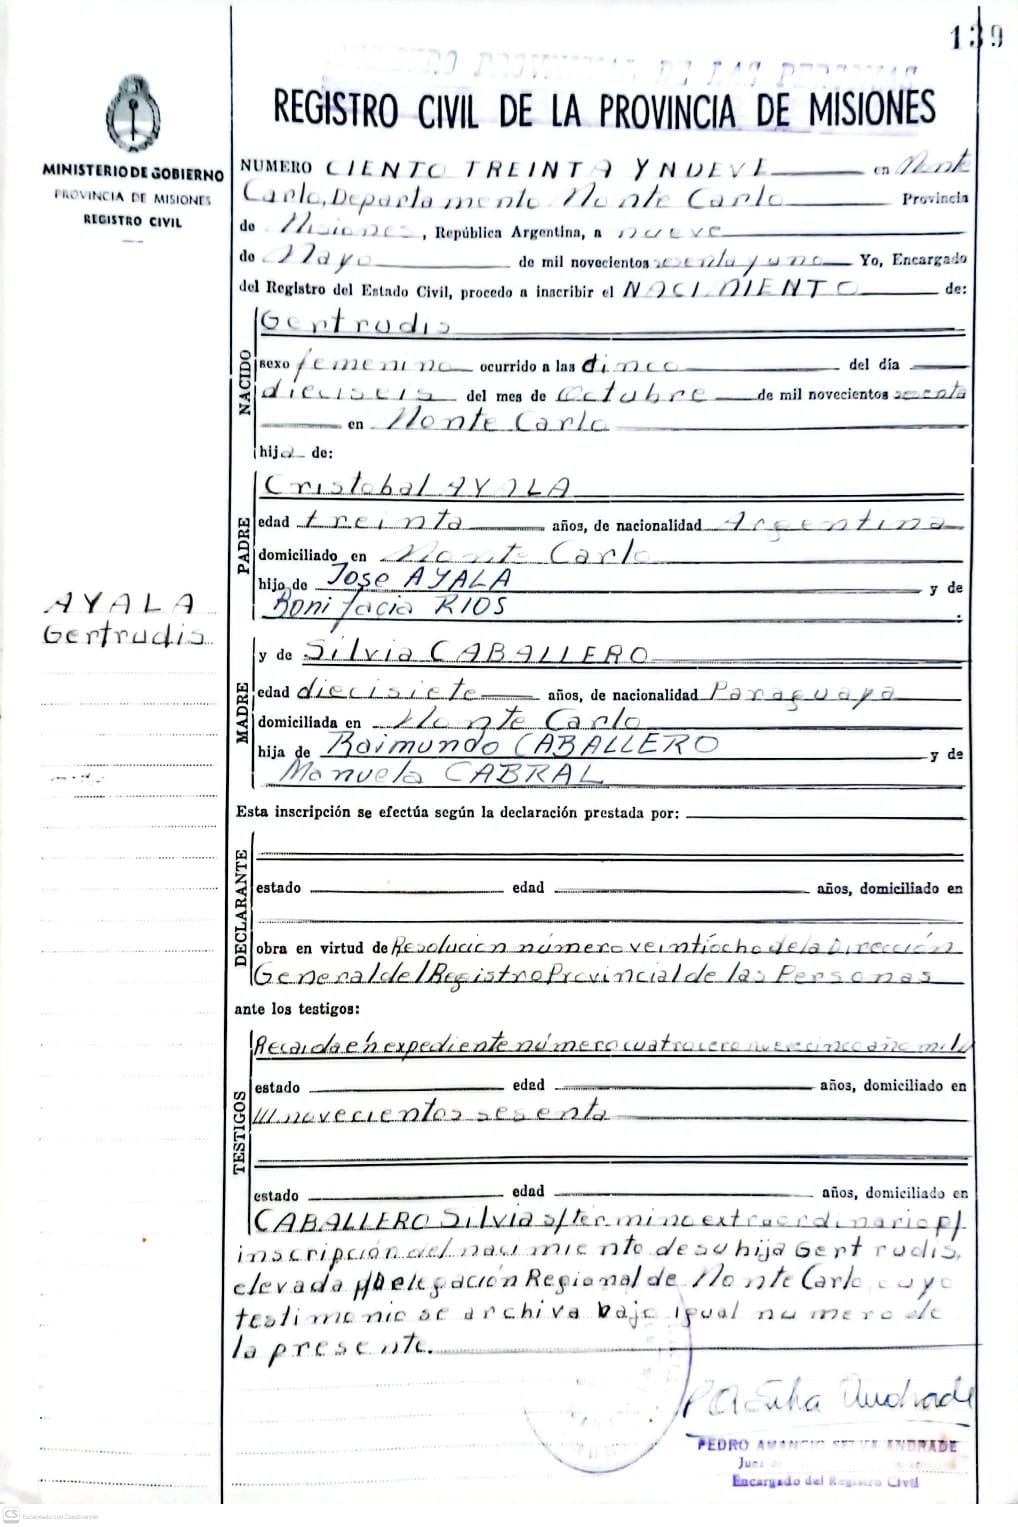 139
REGISTRO PROVINCIAL DE LAS PERSONAS
REGISTRO CIVIL DE LA PROVINCIA DE MISIONES
MINISTERIO DE GOBIERNO
PROVINCIA DE MISIONES
REGISTRO CIVIL
NUMERO CIENTO TREINTA Y NUEVE en Monte
Carlo, Departamento Monte Carlo Provincia
de Misiones, República Argentina, a nueve
de Mayo de mil novecientos sesenta y uno Yo, Encargado
del Registro del Estado Civil, procedo a inscribir el NACIMIENTO de:
NACIDO
Gertrudis
sexo femenino ocurrido a las cinco del día
dieciseis del mes de Octubre de mil novecientos sesenta
en Monte Carlo
hija de:
PADRE
Cristobal AYALA
edad treinta años, de nacionalidad Argentina
domiciliado en Monte Carlo
hijo de Jose AYALA y de
Bonifacia RIOS
AYALA
Gertrudis
MADRE
y de Silvia CABALLERO
edad diecisiete años, de nacionalidad Paraguaya
domiciliada en Monte Carlo
hija de Raimundo CABALLERO y de
Manuela CABRAL
Esta inscripción se efectúa según la declaración prestada por:
DECLARANTE
estado edad años, domiciliado en
obra en virtud de Resolución número veintiocho de la Dirección
General del Registro Provincial de las Personas
ante los testigos:
TESTIGOS
Recaida en expediente número cuatro cero nueve cinco año mil
estado edad años, domiciliado en
novecientos sesenta
estado edad años, domiciliado en
CABALLERO Silvia s/termino extraordinario p/.
inscripción del nacimiento de su hija Gertrudis,
elevada p/Delegación Regional de Monte Carlo, cuyo
testimonio se archiva bajo igual numero de
la presente.
PEDRO AMANCIO SILVA ANDRADE
Juez de
Encargado del Registro Civil
CS Escaneado con CamScanner